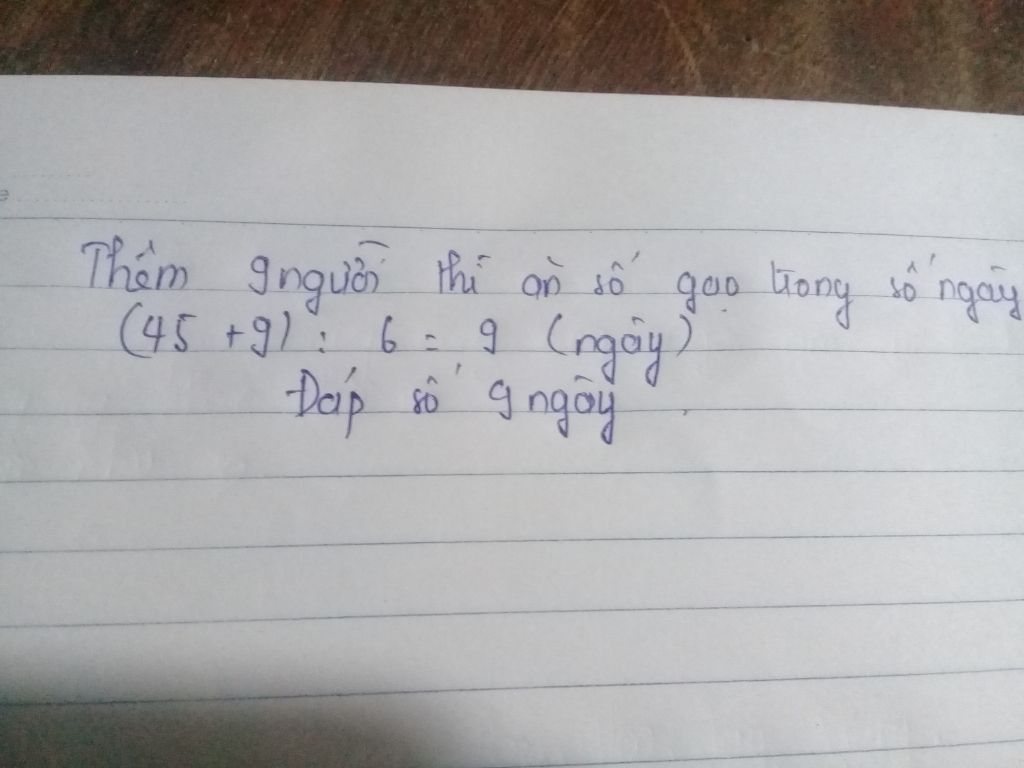 Thêm 9 người thì ăn số gạo trong số ngày
(45 + 9) : 6 = 9 (ngày)
Đáp số 9 ngày